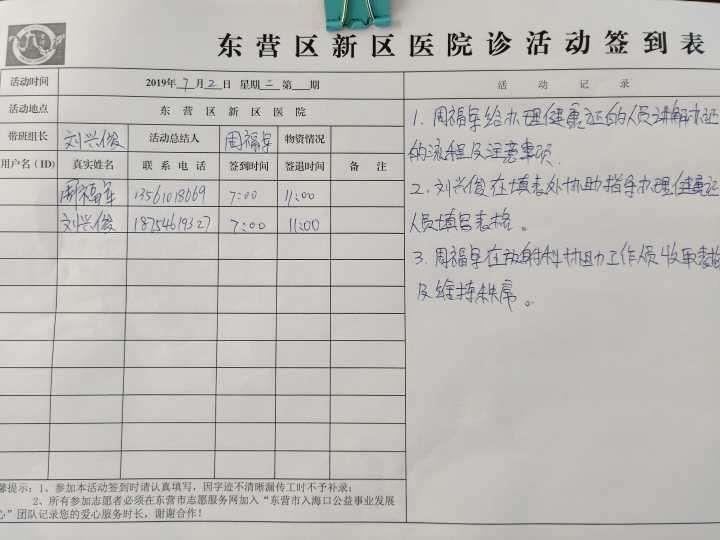 东营区新区医院诊活动签到表
活动时间 2019年7月2日 星期二 第 期
活动地点 东营区新区医院
带班组长 刘兴俊 活动总结人 周福军 物资情况
用户名(ID) 真实姓名 联系电话 签到时间 签退时间 备注
周福军 13561018669 7:00 11:00
刘兴俊 18754619327 7:00 11:00
馨提示:1、参加本活动签到时请认真填写,因字迹不清晰漏传工时不予补录;
2、所有参加志愿者必须在东营市志愿服务网加入“东营市入海口公益事业发展
心”团队记录您的爱心服务时长,谢谢合作!
活动记录
1.周福军给办理健康证的人员讲解办证
的流程及注意事项.
2.刘兴俊在填表处协助指导办理健康证
人员填写表格。
3.周福军在放射科协助工作人员收取表格
及维持秩序。